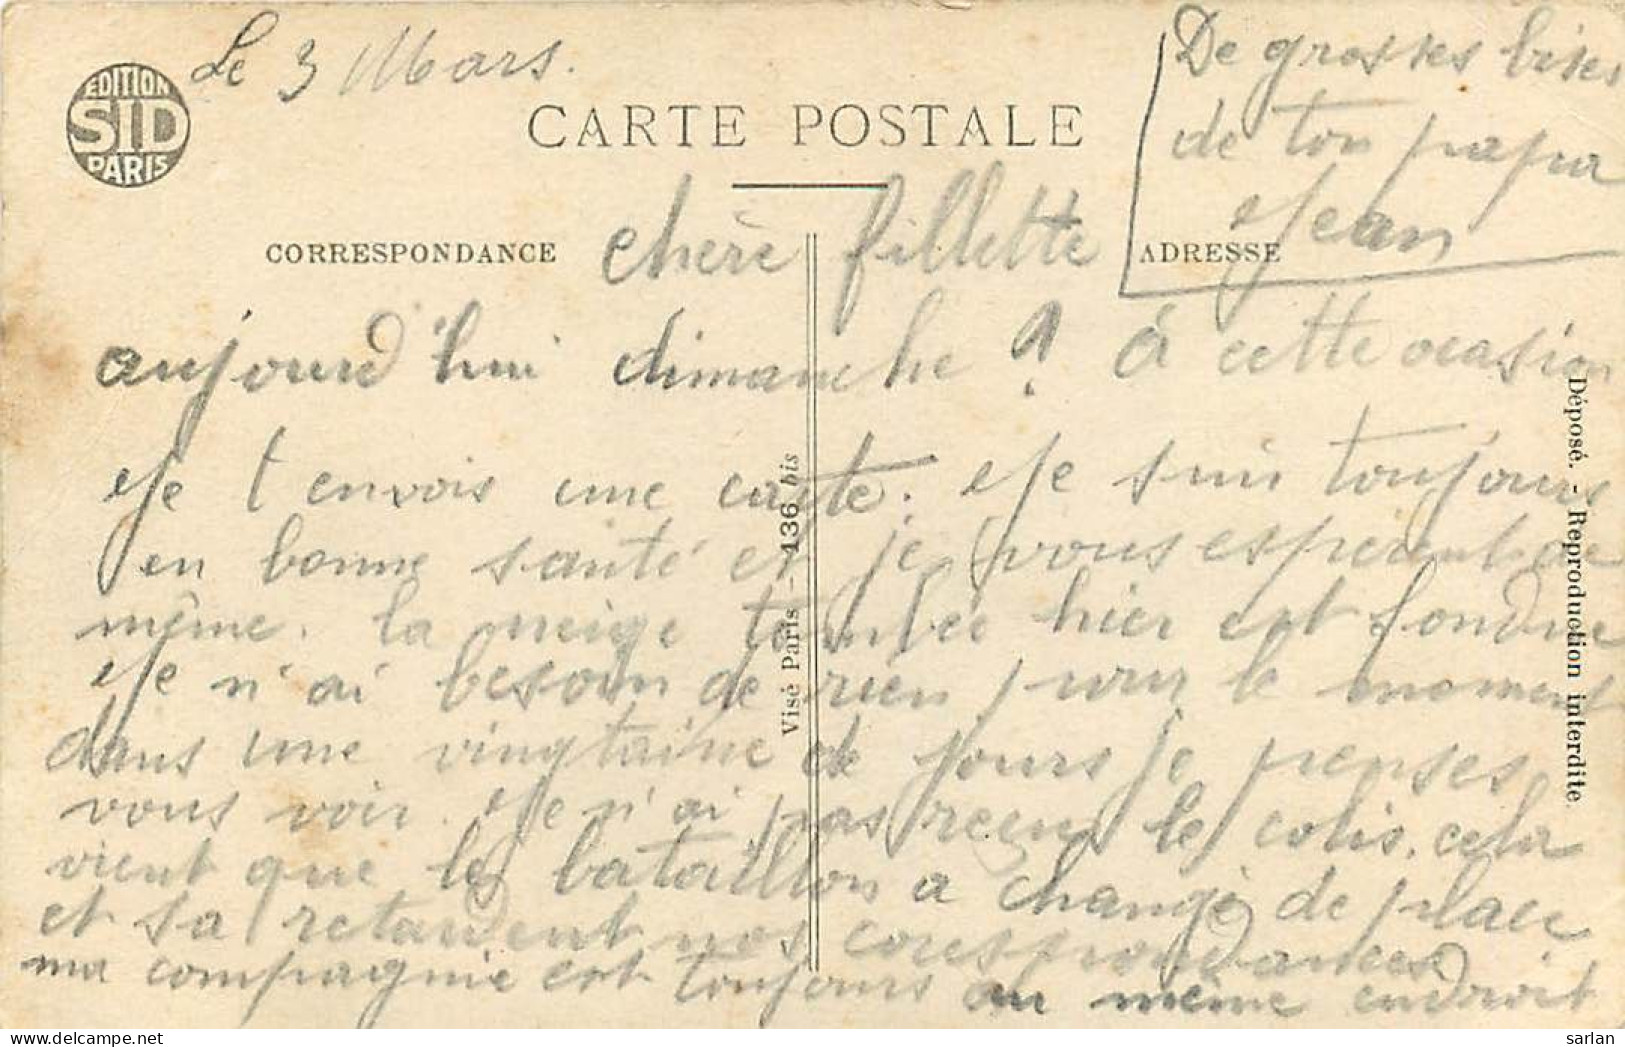 Le 3 Mars.
De grosses bises
de ton papa
Jean
EDITION
SID
PARIS
CARTE POSTALE
CORRESPONDANCE
ADRESSE
chère fillette
aujourd'hui dimanche ? à cette ocasion
Je t envois une carte. Je suis toujours
en bonne santé et je vous espère de
même. la neige tombée hier est fondue
Je n'ai besoin de rien pour le moment
dans une vingtaine de jours je penses
vous voir. Je n'ai pas reçu le colis. cela
vient que le bataillon a changé de place
et sa retardent nos correspondances
ma compagnie est toujours au même endroit
Visé Paris - 136 bis
Déposé. - Reproduction interdite
sarlan